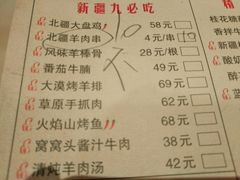 新疆九必吃
北疆大盘鸡 58元
北疆羊肉串 4元/串
风味羊棒骨 28元/根
番茄牛腩 49元
大漠烤羊排 69元
草原手抓肉 62元
火焰山烤鱼 68元
窝窝头酱汁牛肉 38元
清炖羊肉汤 42元
桂花糖
香拌牛
新疆
酸奶